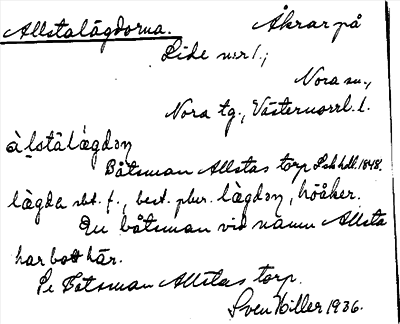 Allstalägdorna. Åkrar på
Lide nr 1.;
Nora sn.,
Nora tg., Västernorrl. l.
àlstàlægdən
Båtsman Allstas torp Lskhdl. 1848.
lægda sbt. f., best. plur. lægdən, höåker.
En båtsman vid namn Allsta
har bott här.
Se Båtsman Allstas torp.
Sven Hiller 1936.